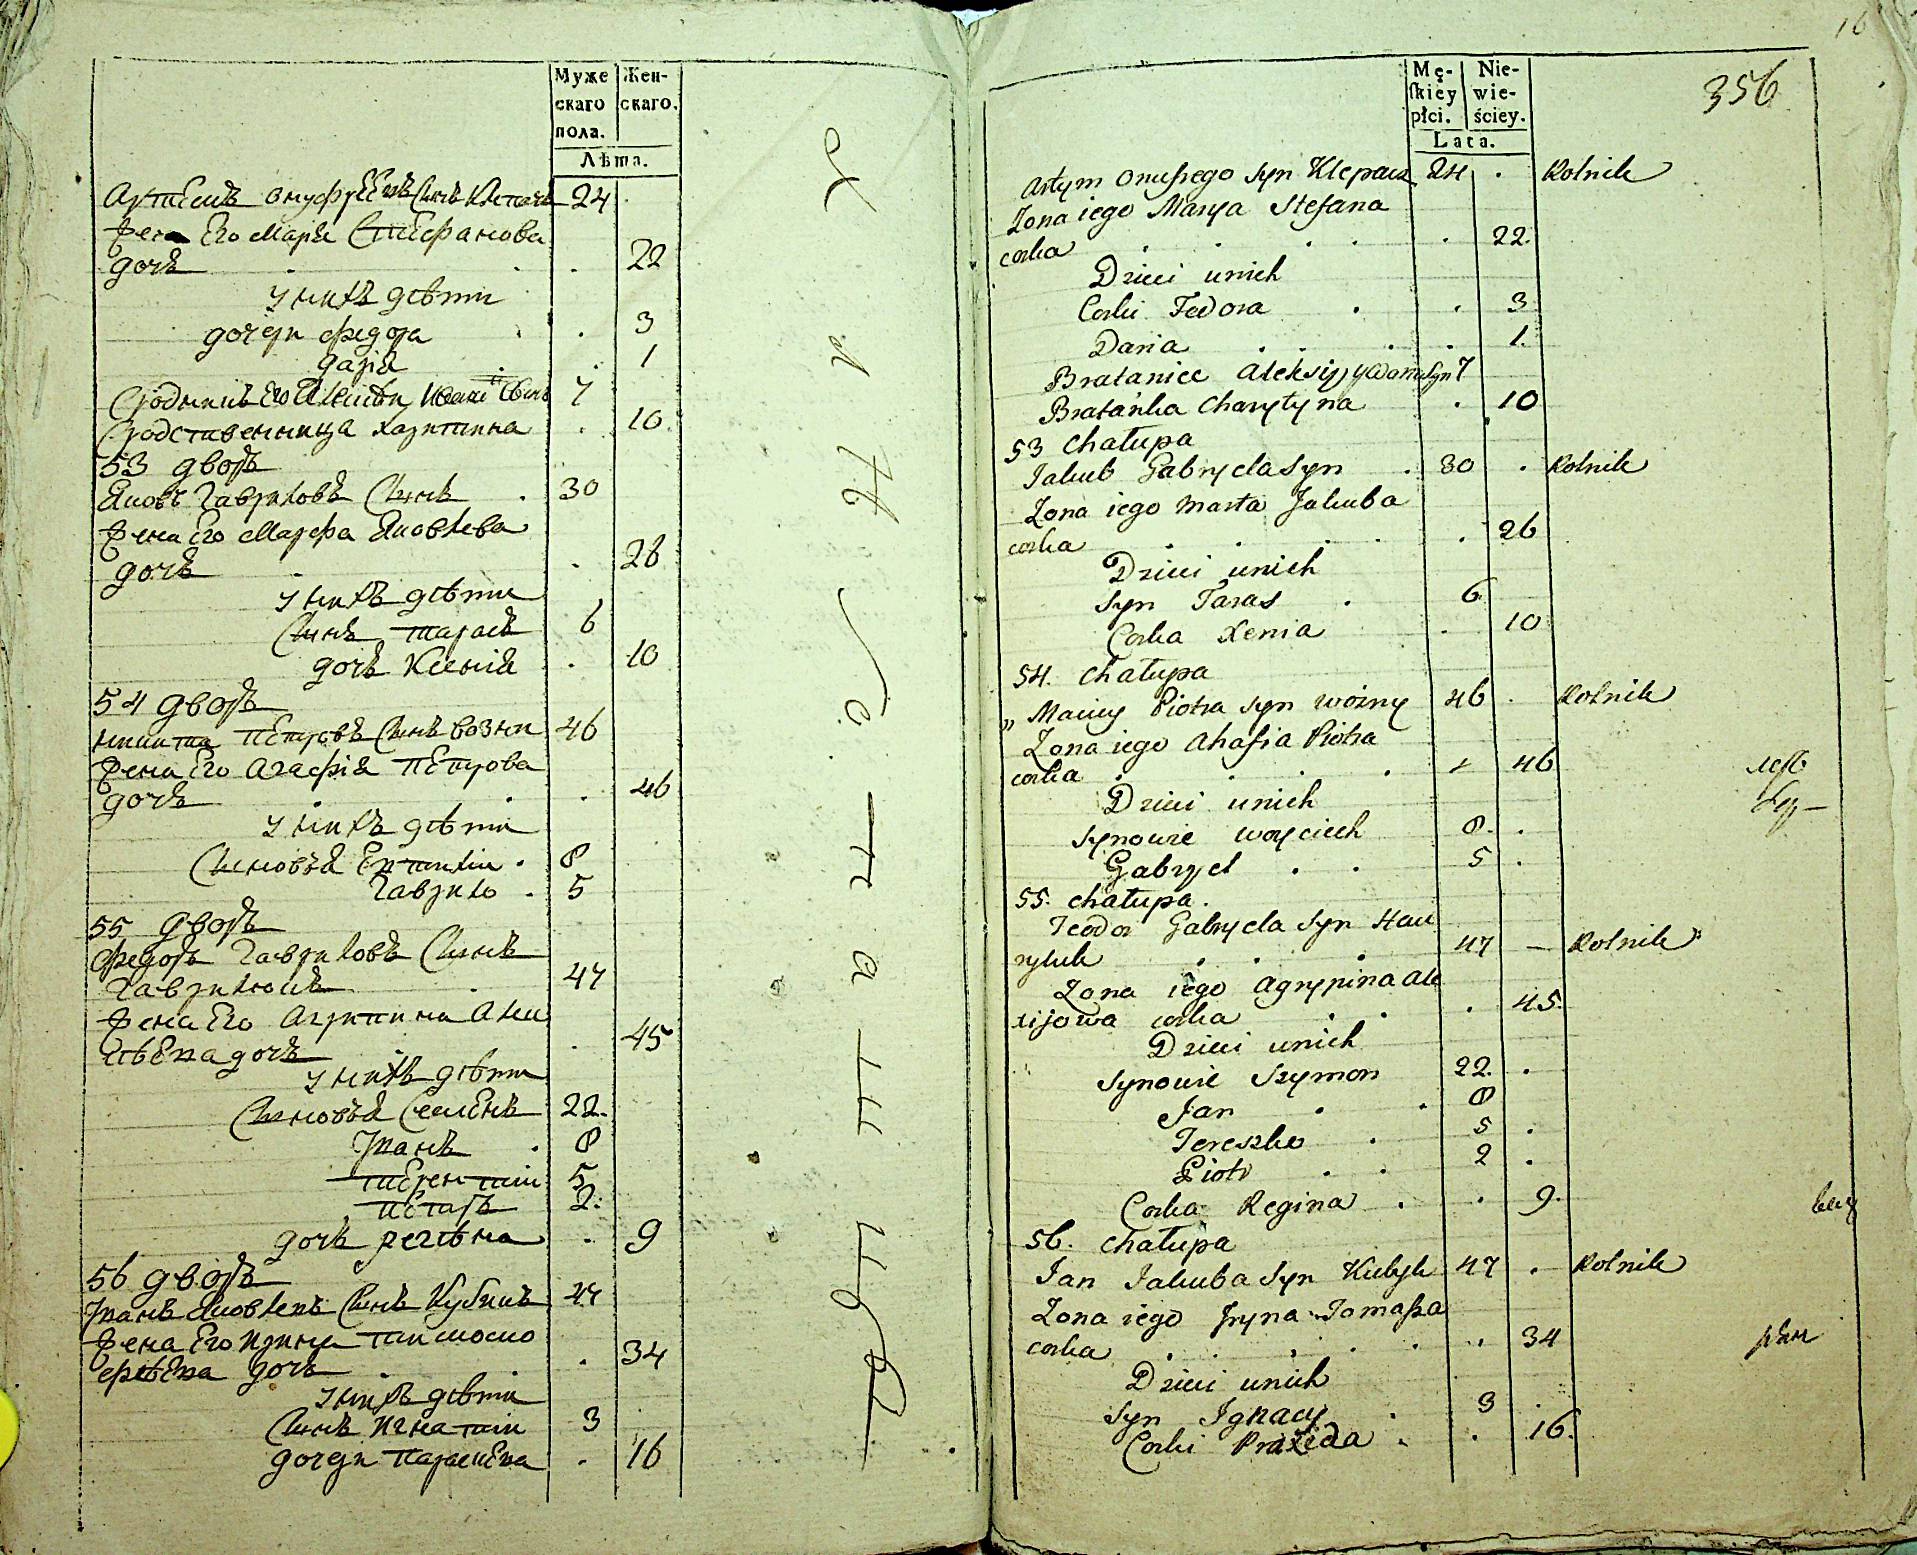 Муже
скаго
пола.
Жен-
скаго.
Лѣта.
Артиемъ Онуфріевъ Сынъ Клепачъ 24
жена Его Марія Стефанова
дочь 22
У нихъ дѣти
дочери Федора 3
Дарія 1
Сродникъ Его Сынъ 7
Сродственница Харитина 10
53 дворъ
Яковъ Гавриловъ Сынъ 30
жена Его Марфа Яковлева
дочь 26
У нихъ дѣти
Сынъ Тарасъ 6
дочь Ксенія 10
54 дворъ
Никита Петровъ Сынъ Возни 46
жена Его Агафія Петрова
дочь 46
У нихъ дѣти
Сыновья 8
Гаврило 5
55 дворъ
Федоръ Гавриловъ Сынъ
Гаврилюкъ 47
жена Его Агрипина Але
ксѣева дочь 45
У нихъ дѣти
Сыновья Семенъ 22.
Иванъ 8
Терентій 5
Петръ 2.
дочь Регѣна 9
56 дворъ
Иванъ Яковлевъ Сынъ Кубикъ 47
жена Его Ирина Тимо
фѣева дочь 34
У нихъ дѣти
Сынъ Игнатій 3
дочери Параскева 16
16
356
Mę-
skiey
płci.
Nie-
wie-
ściey.
Lata.
Artym Onufrego Syn Klepacz 24 Rolnik
Zona iego Marya Stefana
corka 22.
Dzieci unich
Corki Fedora 3
Daria 1.
Bratanice Alexiy Syn 7
Bratanka Charytyna 10
53 Chałupa
Jakub Gabryela Syn 30 Rolnik
Zona iego Marta Jakuba
corka 26
Dzieci unich
Syn Taras 6
Corka Xenia 10
54. Chałupa
Piotra Syn Wozny 46 Rolnik
Zona iego Ahafia Piotra
corka 46
Dzieci unich
Synowie Woyciech 8.
Gabryel 5
55. Chałupa.
Teodor Gabryela Syn Hau
ryluk 47 — Rolnik
Zona iego Agrypina Ale
xijowa corka 45.
Dzieci unich
Synowie Szymon 22.
Jan 8
Tereszko 5
Piotr 2
Corka Regina 9.
56. Chałupa
Jan Jakuba Syn Kubyk 47 Rolnik
Zona iego Jryna Tomasza
corka 34
Dzieci unich
Syn Ignacy 3
Corki Praxeda 16.